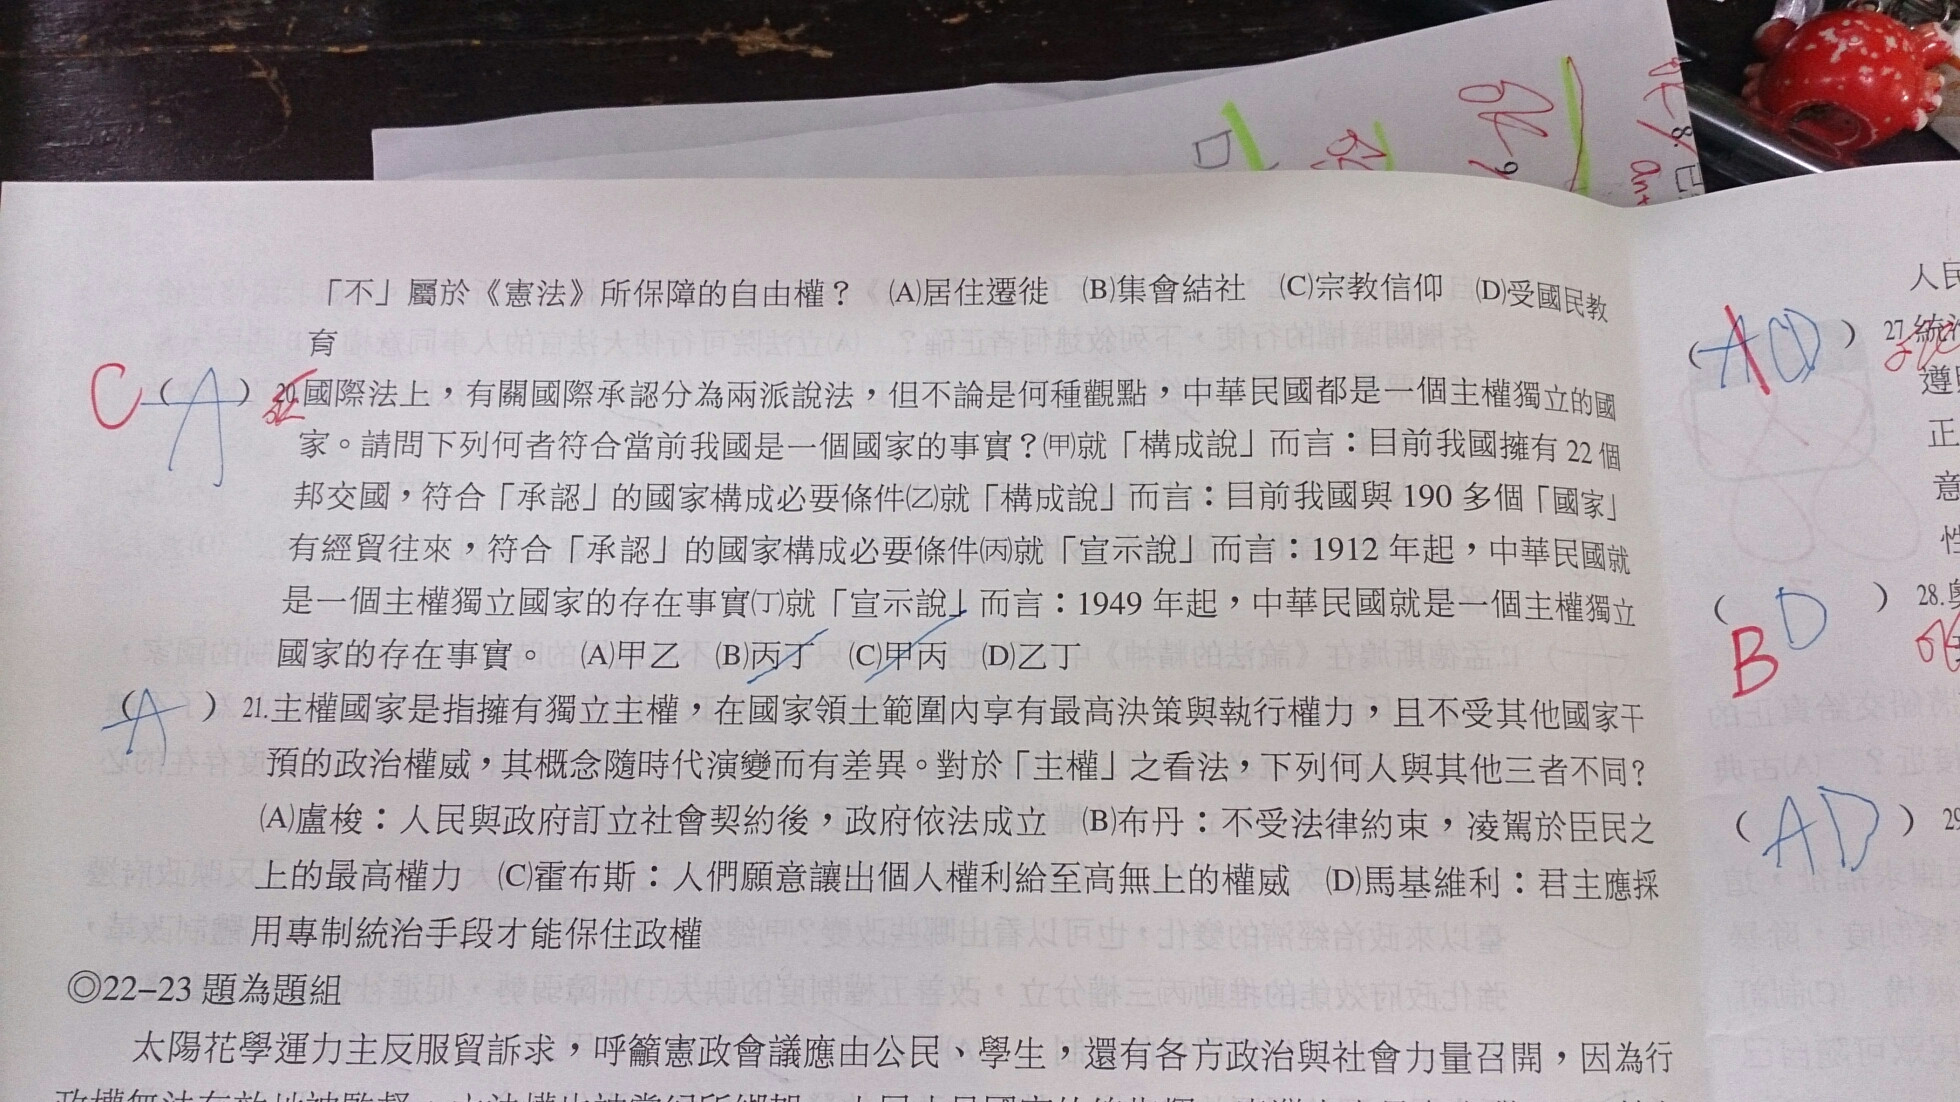 「不」屬於《憲法》所保障的自由權？ (A)居住遷徙 (B)集會結社 (C)宗教信仰 (D)受國民教
育
C (A) 20.國際法上，有關國際承認分為兩派說法，但不論是何種觀點，中華民國都是一個主權獨立的國
家。請問下列何者符合當前我國是一個國家的事實？(甲)就「構成說」而言：目前我國擁有 22 個
邦交國，符合「承認」的國家構成必要條件(乙)就「構成說」而言：目前我國與 190 多個「國家」
有經貿往來，符合「承認」的國家構成必要條件(丙)就「宣示說」而言：1912 年起，中華民國就
是一個主權獨立國家的存在事實(丁)就「宣示說」而言：1949 年起，中華民國就是一個主權獨立
國家的存在事實。 (A)甲乙 (B)丙丁 (C)甲丙 (D)乙丁
(A) 21.主權國家是指擁有獨立主權，在國家領土範圍內享有最高決策與執行權力，且不受其他國家干
預的政治權威，其概念隨時代演變而有差異。對於「主權」之看法，下列何人與其他三者不同？
(A)盧梭：人民與政府訂立社會契約後，政府依法成立 (B)布丹：不受法律約束，凌駕於臣民之
上的最高權力 (C)霍布斯：人們願意讓出個人權利給至高無上的權威 (D)馬基維利：君主應採
用專制統治手段才能保住政權
◎22–23 題為題組
太陽花學運力主反服貿訴求，呼籲憲政會議應由公民、學生，還有各方政治與社會力量召開，因為行
人民
(ACD) 27.統治
遵
正
意
性
(D) 28.奧
B
(AD) 29
8.
9